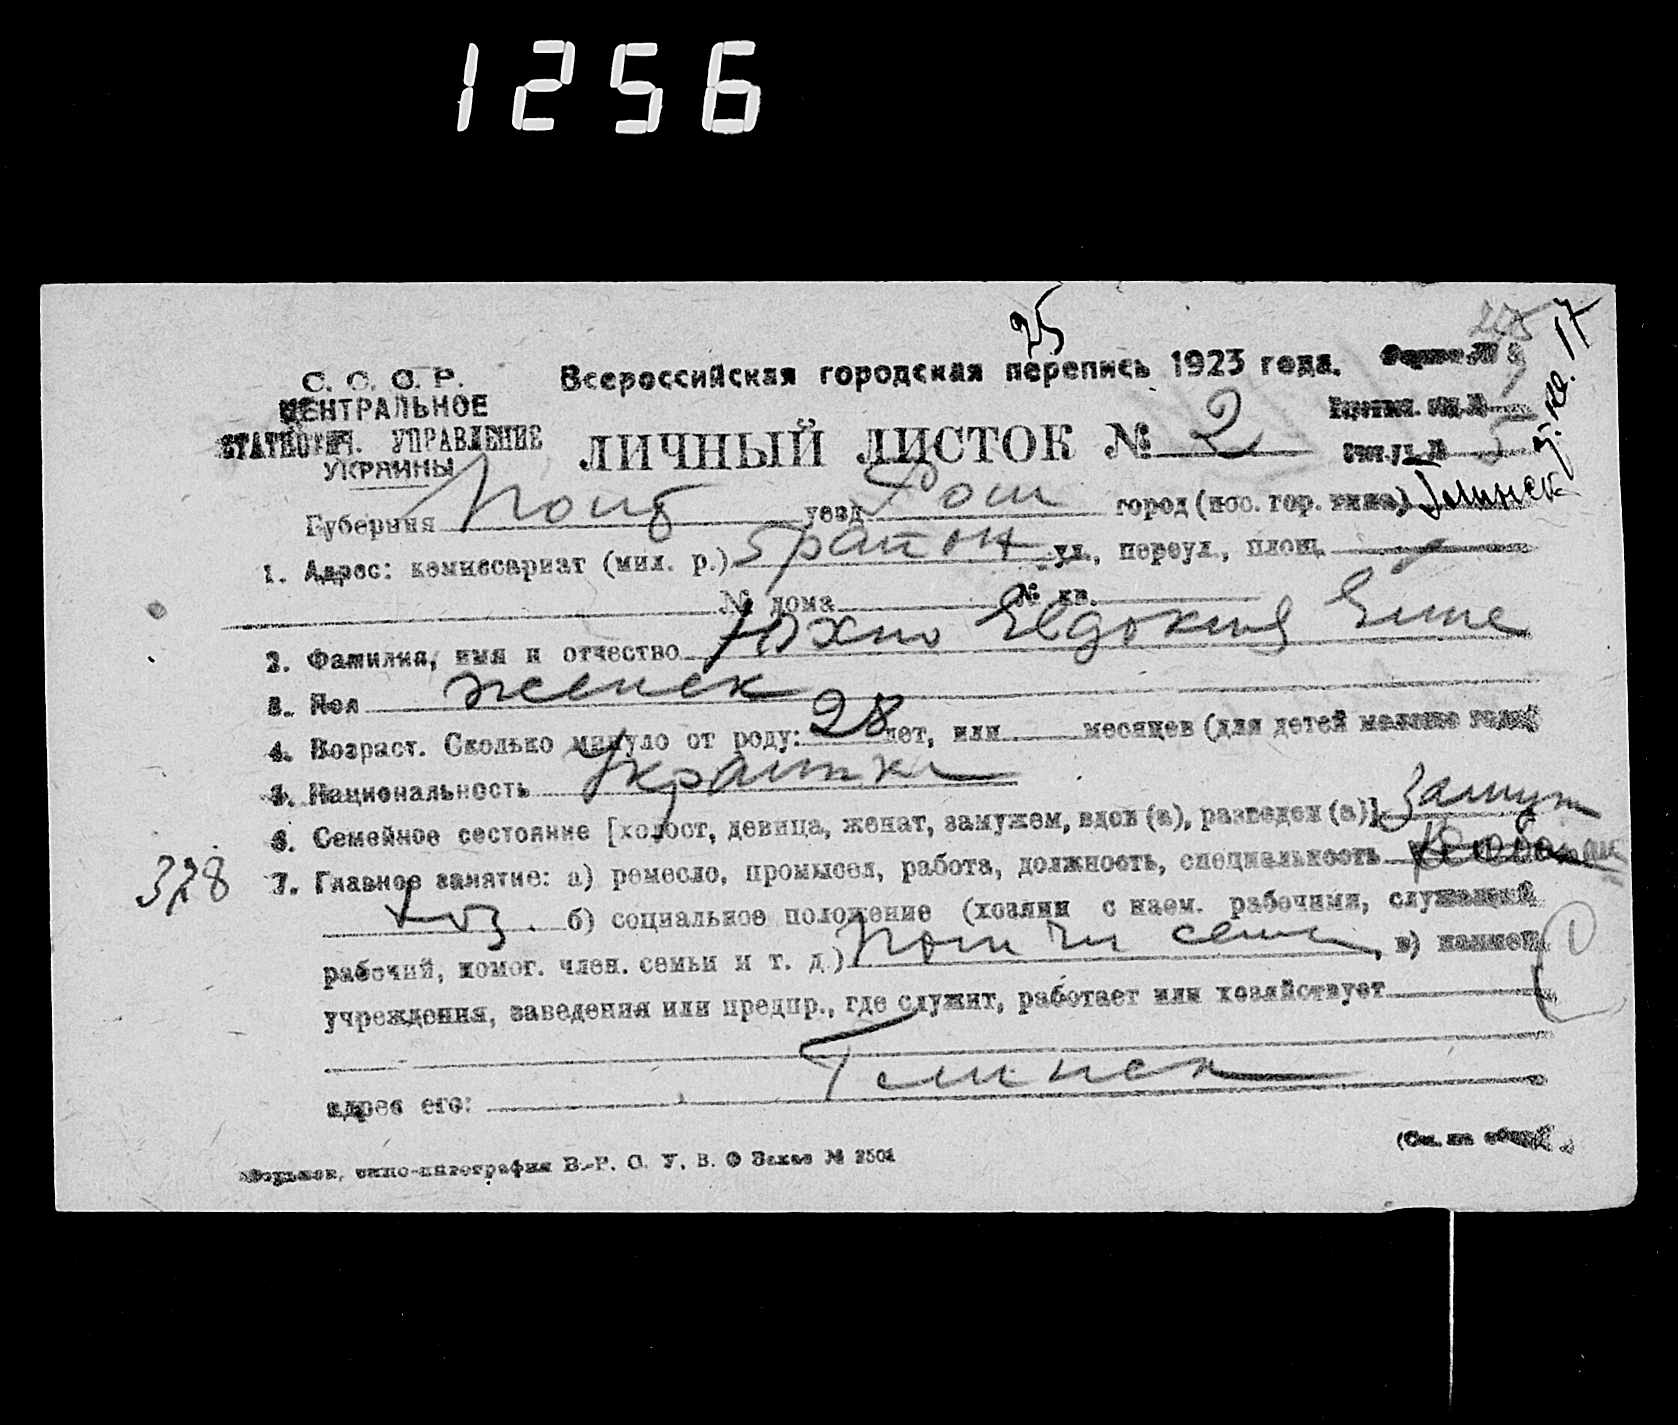 1256
25
С. С. С. Р.
ЦЕНТРАЛЬНОЕ
СТАТИСТИЧ. УПРАВЛЕНИЕ
УКРАИНЫ
Всероссийская городская перепись 1923 года.
17
ЛИЧНЫЙ ЛИСТОК № 2
Губерния Полт уезд Ром город (пос. гор. типа) Глинск
1. Адрес: комиссариат (мил. р.) район ул., переул., площ.
№ дома № кв.
2. Фамилия, имя и отчество Юхно Евдокия
3. Пол женск
4. Возраст. Сколько минуло от роду: 28 лет, или месяцев (для детей моложе года)
5. Национальность Украинка
6. Семейное состояние [холост, девица, женат, замужем, вдов (а), разведен (а)] Замуж
328
7. Главное занятие: а) ремесло, промысел, работа, должность, специальность
б) социальное положение (хозяин с наем. рабочими, служащий
рабочий, помог. член. семьи и т. д.) семьи, в) наимен.
1
учреждения, заведения или предпр., где служит, работает или хозяйствует
адрес его: Глинск
(См. на обор
типо-литография В. У. З. Заказ № 2501